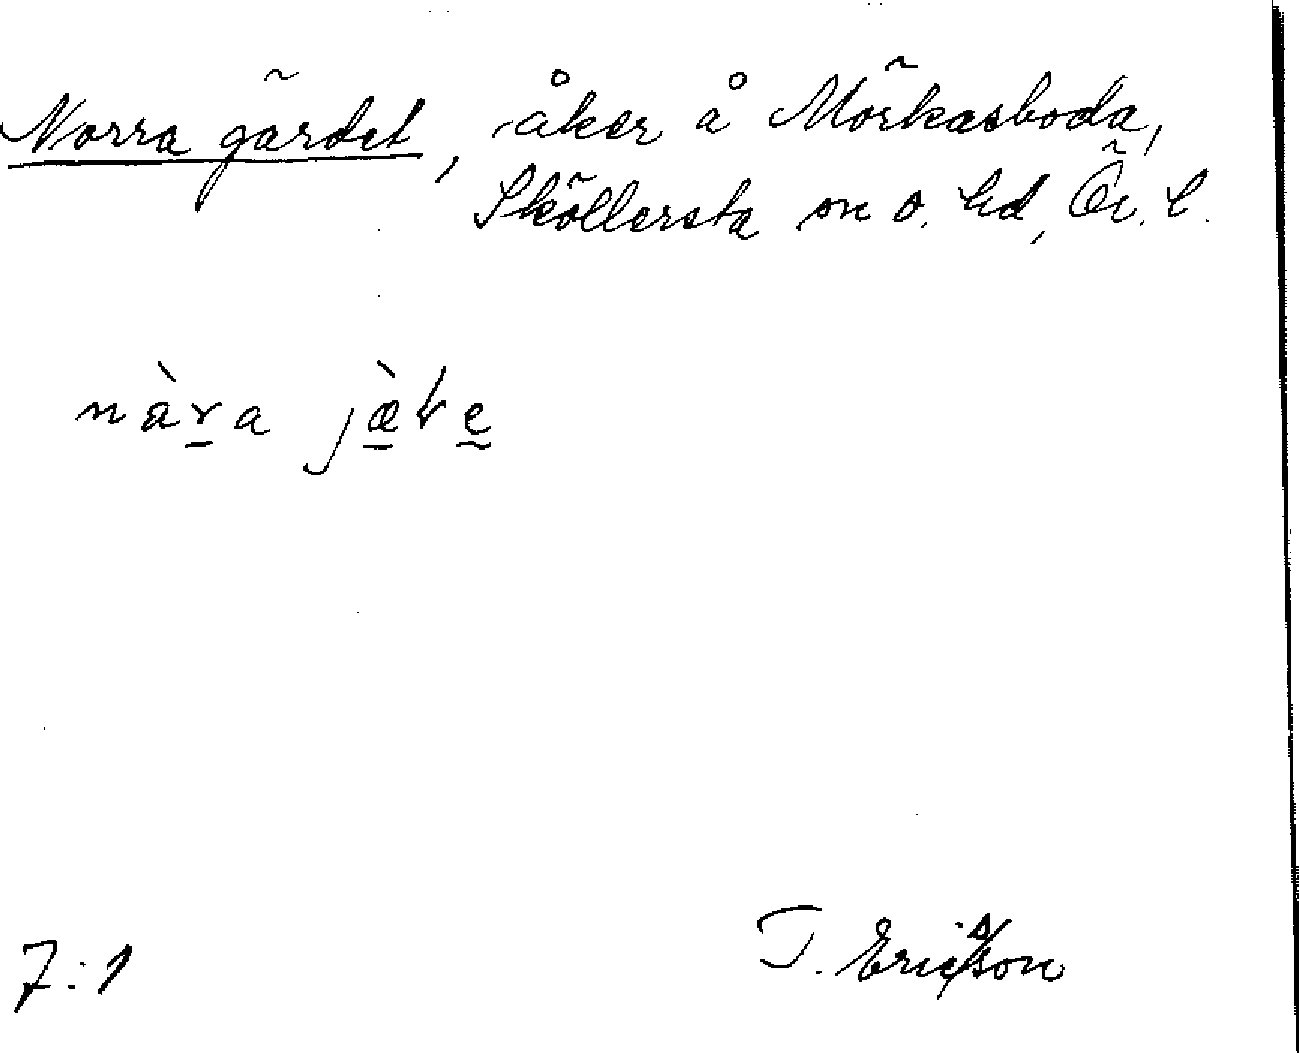 Norra gärdet, åker å Mörkasboda,
Sköllersta sn o. hd, Ör. l.
nàra jæ̀ɽe
7:1
T. Ericsson